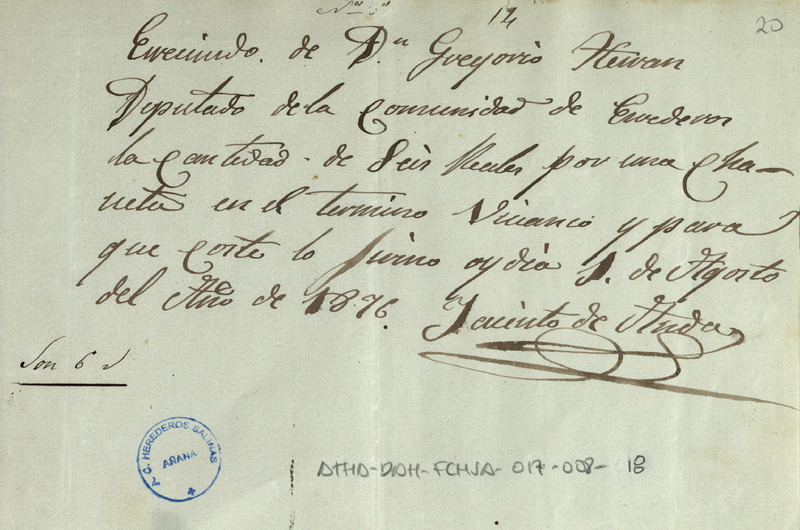 14
20
Erreciuido. de D.n Gregorio Heiran
Diputado de la Comunidad de Erederos
la Cantidad. de Seis Reales por una Cha-
neta en el termino Viuanco y para
que Coste lo firmo oy dia 1. de Agosto
del Año de 1876. Jacinto de Anda
Son 6 r
A. C. HEREDEROS SALINAS
AÑANA
ATHA-DAH-FCHSA-017-008-18